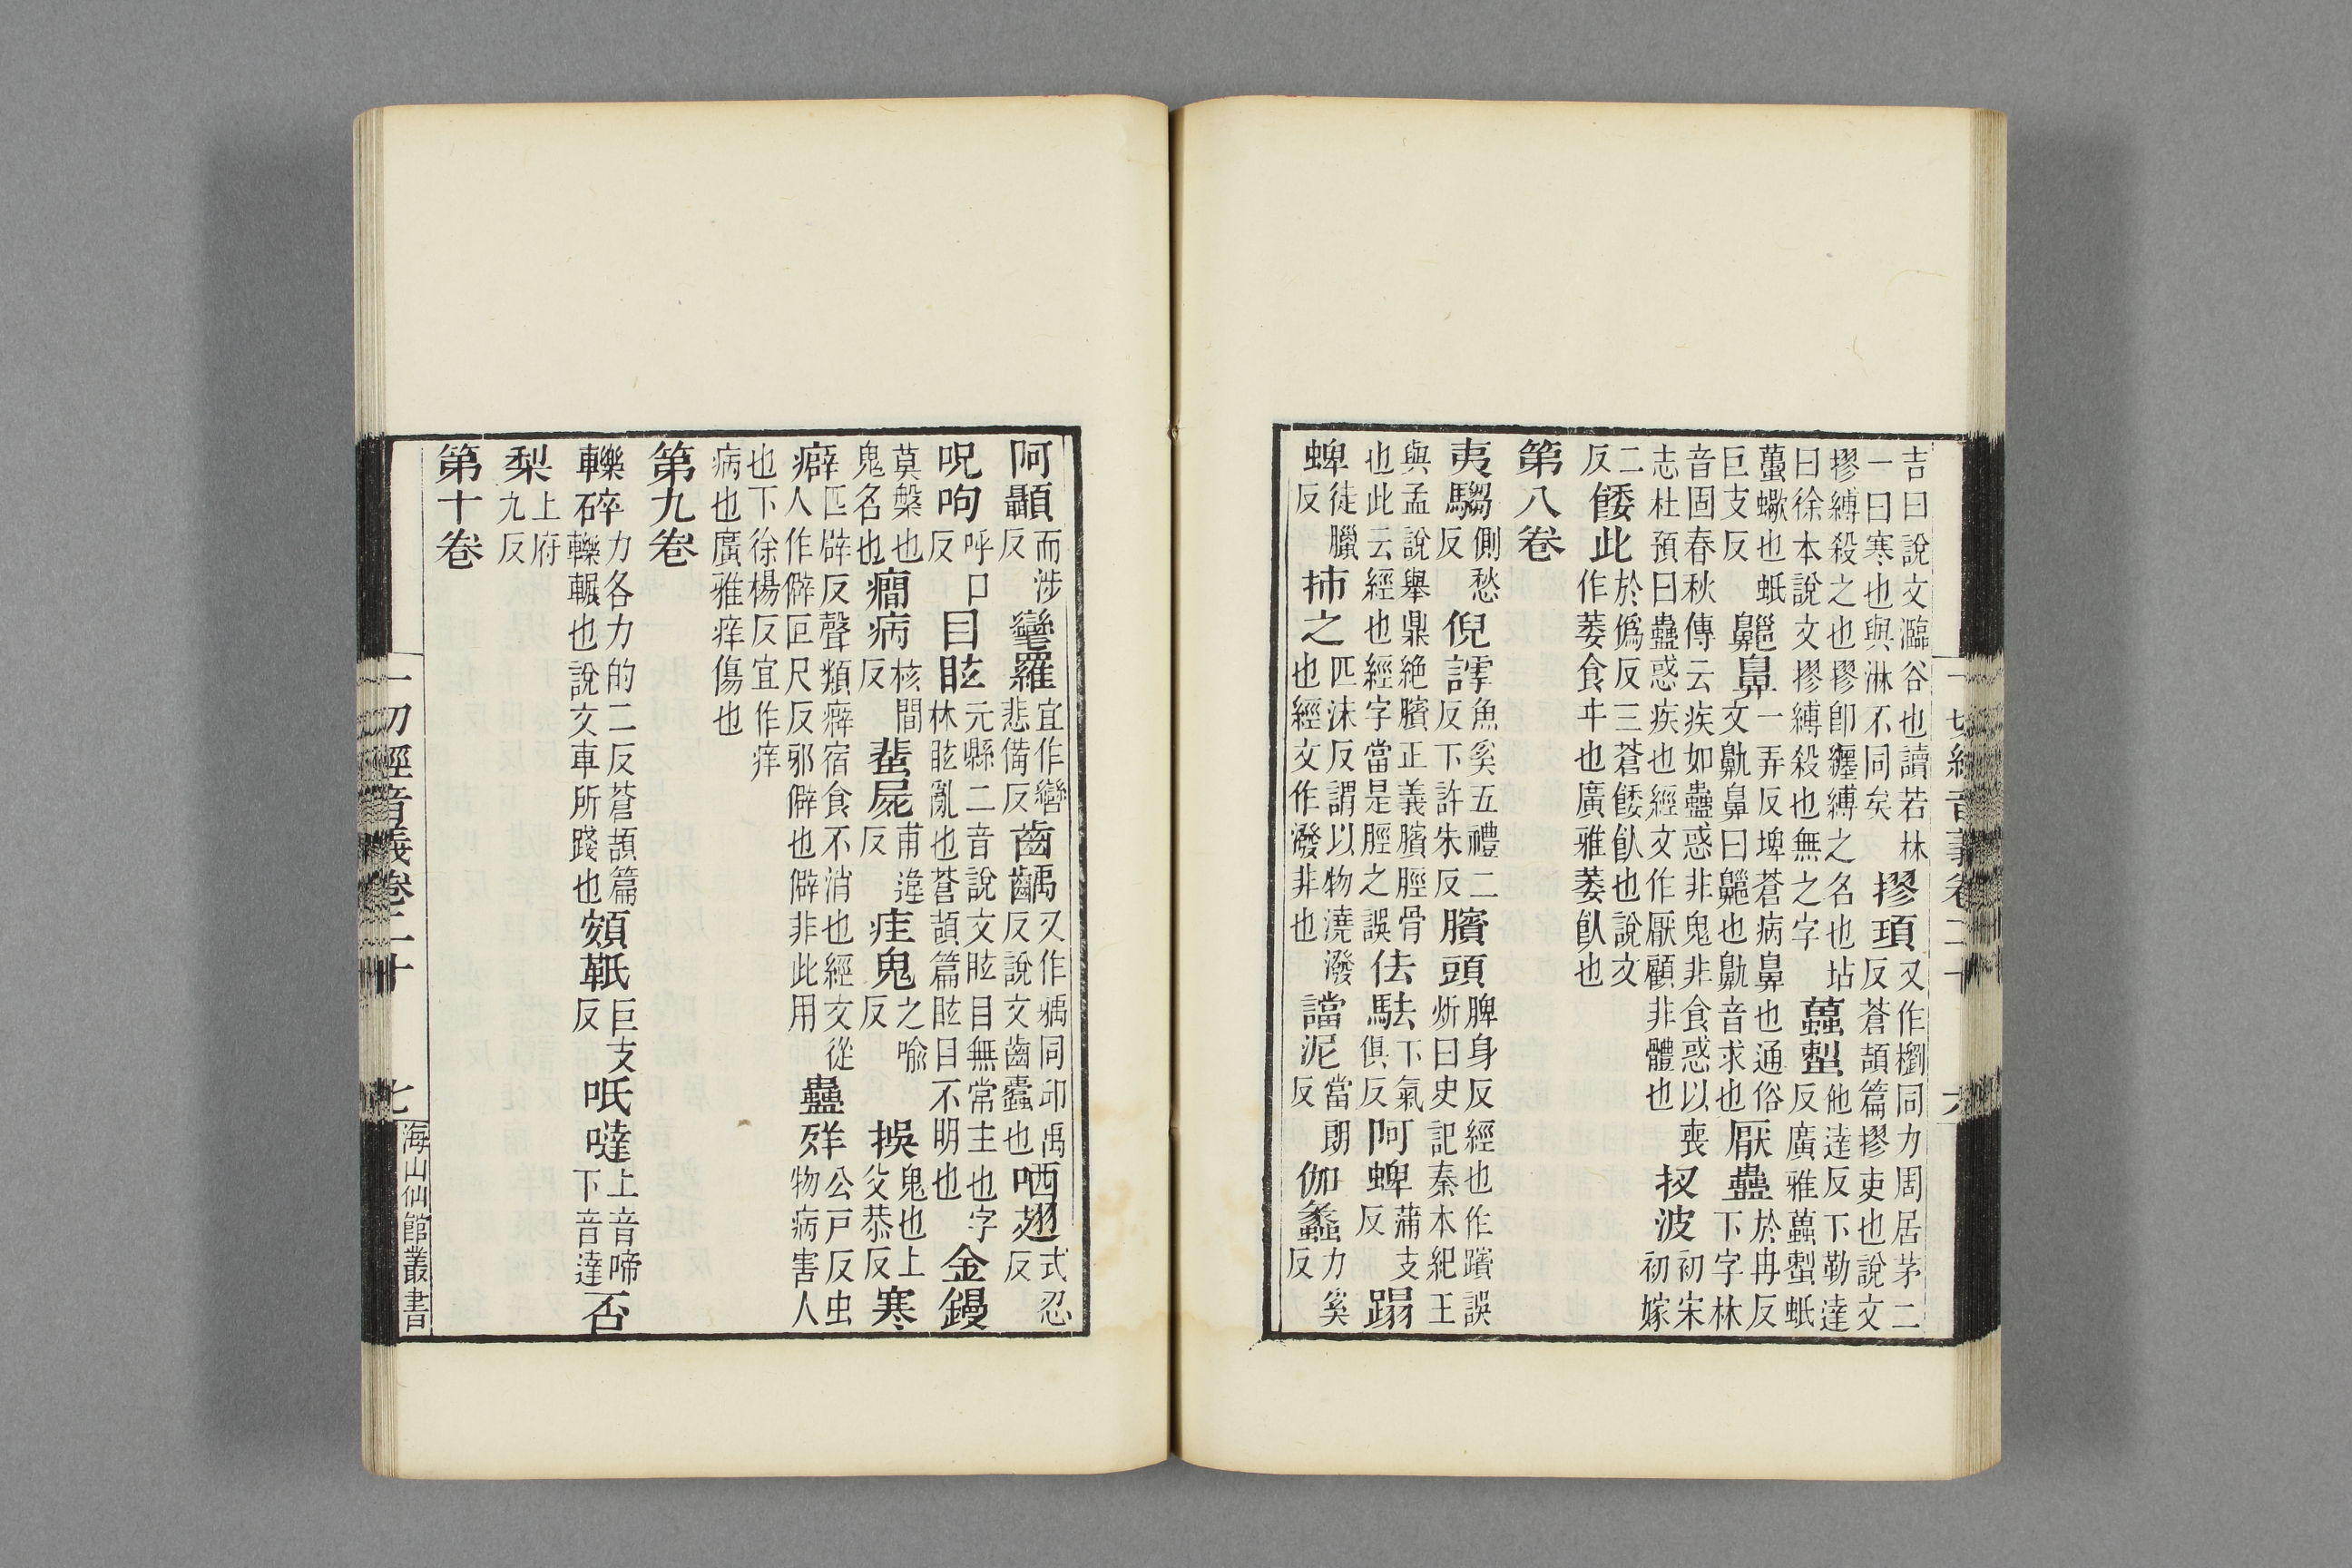 吉曰說文瀶谷也讀若林
一曰寒也與淋不同矣
摎項
又作樛同力周居茅二
反蒼頡篇摎吏也說文
摎縛殺之也摎卽纏縛之名也坫
曰徐本說文摎縛殺也無之字
蠆蜇
他達反下勒達
反廣雅蠆蜇蚔
蠆蠍也蚔
巨支反
齆鼻
一弄反埤蒼病鼻也通俗
文鼽鼻曰齆也鼽音求也
厭蠱
於冉反
下字林
音固春秋傳云疾如蠱惑非鬼非食惑以喪
志杜預曰蠱惑疾也經文作厭顧非體也
扠波
初宋
初嫁
二
反
餧此
於僞反三蒼餧飤也說文
作萎食牛也廣雅萎飤也
第八卷
夷騶
側愁
反
倪謣
魚奚五禮二
反下許朱反
臏頭
脾身反經也作躏誤
炘曰史記秦本紀王
與孟說舉鼎絕臏正義臏脛骨
也此云經也經字當是脛之誤
佉駄
下氣
俱反
阿蜱
蒲支
反
蹋
蜱
徒臘
反
抪之
匹沫反謂以物澆潑
也經文作潑非也
譡泥
當朗
反
伽蠡
力奚
反
一切經音義卷二十
六
阿顳
而涉
反
鸞羅
宜作轡
悲備反
齒齲
又作㺄同邱禹
反說文齒蠹也
哂翅
式忍
反
呪呴
呼口
反
目眩
元縣二音說文眩目無常主也字
林眩亂也蒼頡篇眩目不明也
金鏝
莫槃也
鬼名也
癎病
核間
反
蜚屍
甫違
反
疰鬼
之喩
反
揘
鬼也上
父恭反
寒
癖
匹辟反聲類癖宿食不消也經文從
人作僻匹尺反邪僻也僻非此用
蠱殍
公戸反虫
物病害人
也下徐楊反宜作痒
病也廣雅痒傷也
第九卷
轢碎
力各力的二反蒼頡篇
轢輾也說文車所踐也
頞軧
巨支
反
呧噠
上音啼
下音達
否
梨
上府
九反
第十卷
一切經音義卷二十
七
海山仙館叢書